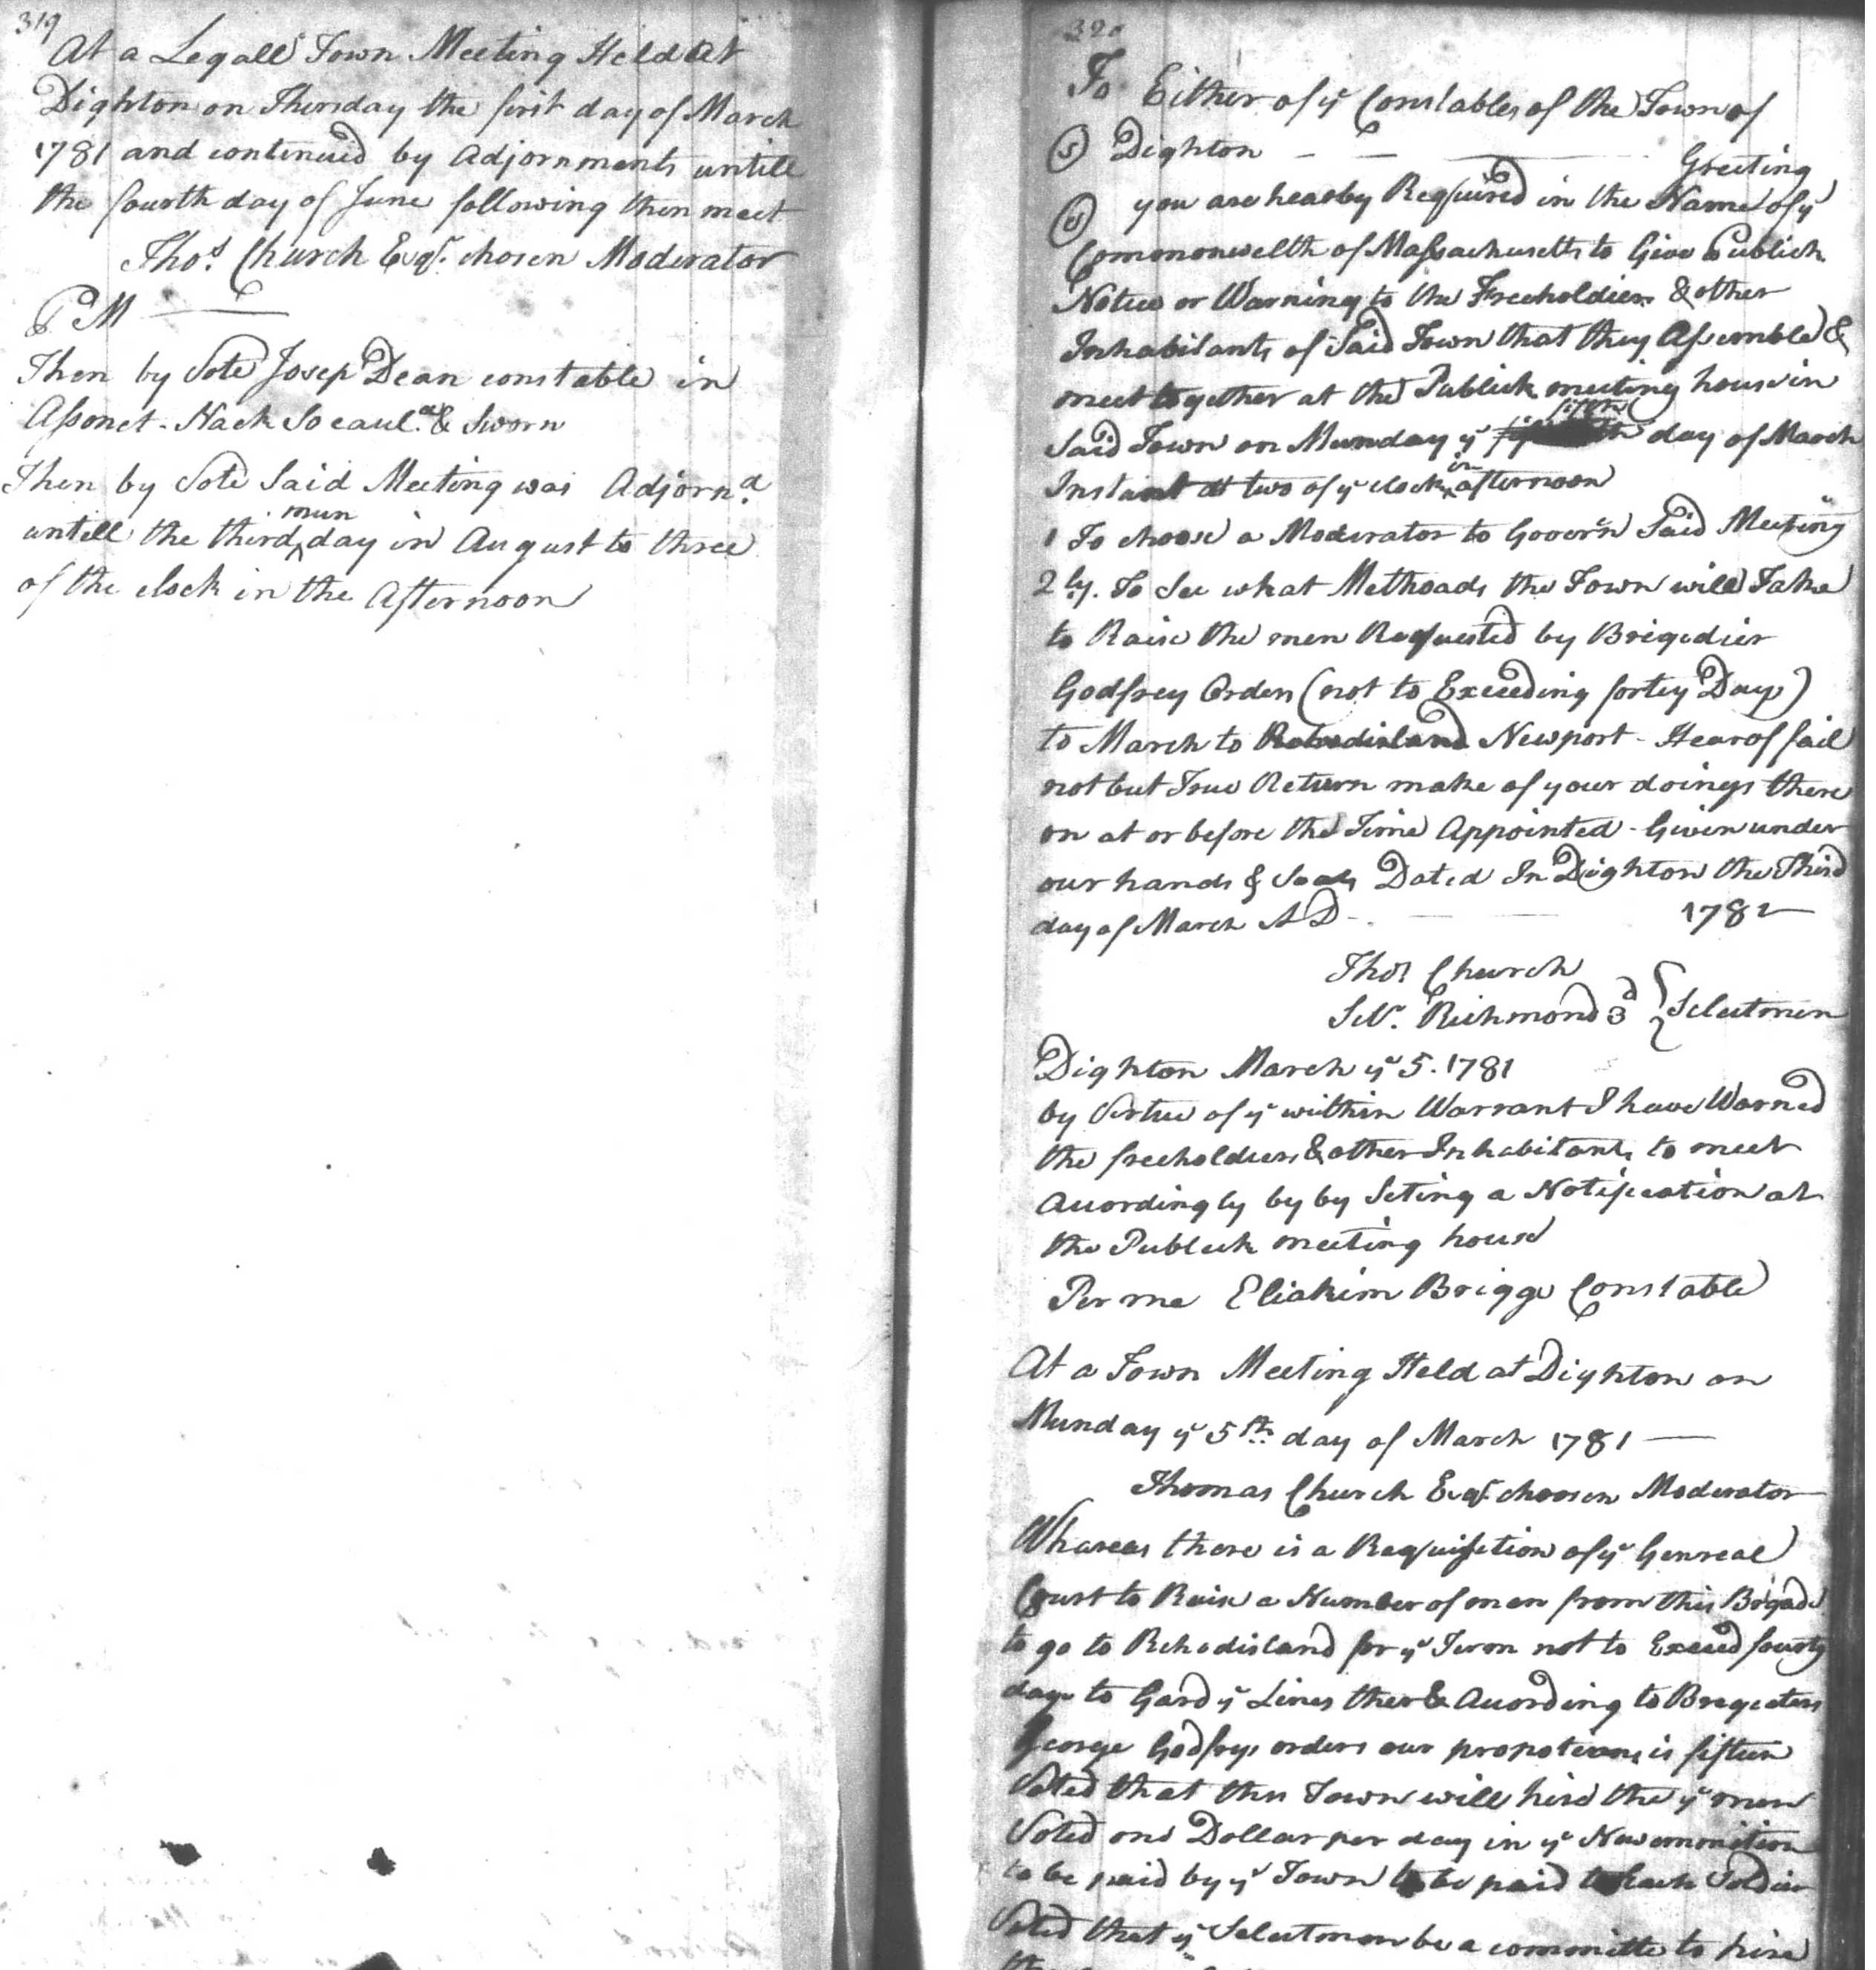 319
At a Legall Town Meeting Held at
Dighton on Thursday the first day of March
1781 and continued by Adjornments untill
the fourth day of June following then meet
Thos. Church Esqr. chosen Moderator
P M
Then by Vote Josep Dean constable in
Assonet-Neck Socaul.ed & Sworn
Then by Vote Said Meeting was Adjornd.
untill the third mun day in August to three
of the clock in the Afternoon
320
To Either of ye Constables of the Town of
S Dighton Greeting
S you are hearby Required in the Name of ye
Commonwelth of Massachusetts to Give Publick
Notice or Warning to the Freeholders & other
Inhabitants of Said Town that they Assemble &
meet together at the Publick meeting house in
Said Town on Munday ye day of March
Instant at two of ye clock in afternoon
1 To choose a Moderator to Govern Said Meeting
2ly. To See what Methoads the Town will Take
to Raise the men Requested by Brigedier
Godfrey Orders (not to Exceeding fortey Days)
to March to Rohodisland Newport - Hearof fail
not but True Return make of your doings there
on at or before the Time Appointed - Given under
our hands & Seals Dated In Dighton the Third
day of March A D - 1781
Thos Church
Silvr. Richmond 3d } Selectmen
Dighton March ye 5. 1781
by Vertue of ye within Warrant I have Warned
the freeholders & other Inhabitants to meet
Acordingly by by Seting a Notification at
the Publick meeting house
Per me Eliakim Briggs Constable
At a Town Meeting Held at Dighton on
Munday ye 5th day of March 1781
Thomas Church Esqr. choosen Moderator
Whareas there is a Requisition of ye Genreal
Court to Raise a Number of men from this Brigade
to go to Rehodisland for ye Term not to Exceed fourty
days to Gard ye Lines ther & Acording to Bregeters
George Godfrys orders our propotions is fifteen
Voted that this Town will hire the ye men
Voted one Dollar per day in ye New emmition
to be paid by ye Town to be paid to Each Soldier
Voted that ye Selectmen be a committe to hire